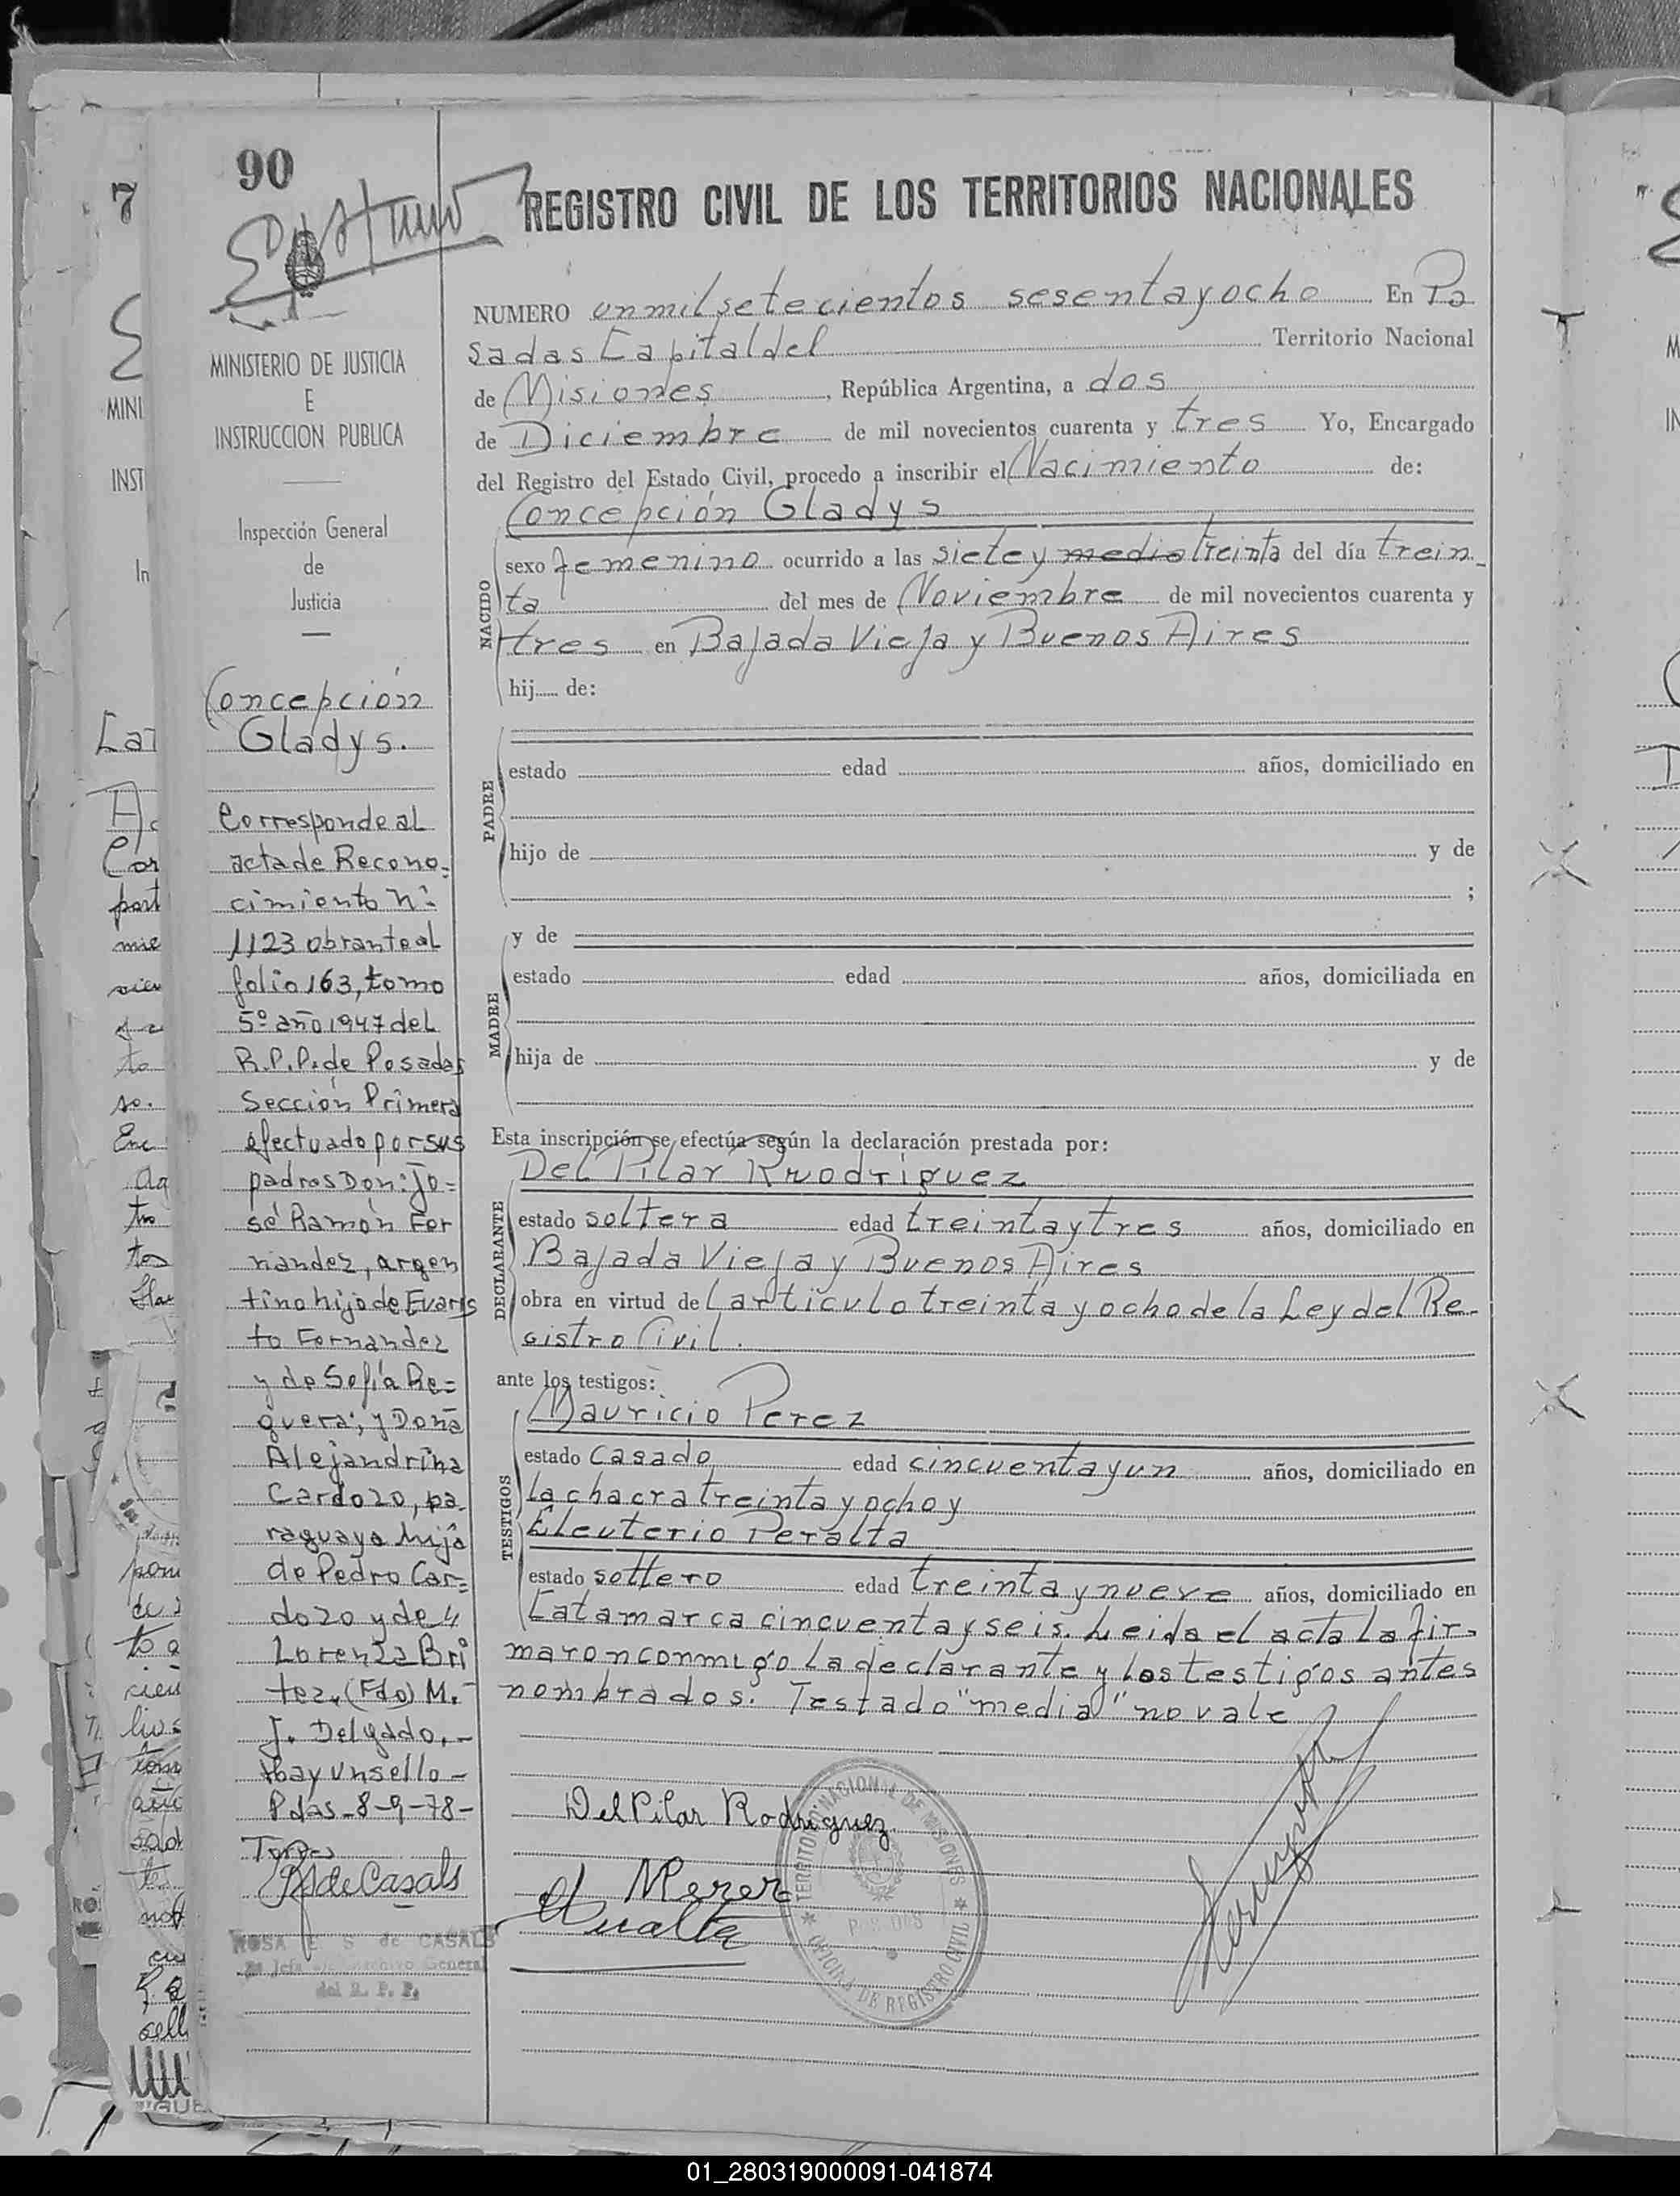 90
REGISTRO CIVIL DE LOS TERRITORIOS NACIONALES
NUMERO un mil setecientos sesenta y ocho En Po
sadas Capital del Territorio Nacional
de Misiones, República Argentina, a dos
de Diciembre de mil novecientos cuarenta y tres Yo, Encargado
del Registro del Estado Civil, procedo a inscribir el Nacimiento de:
NACIDO
Concepción Gladys
sexo femenino ocurrido a las siete y media treinta del día trein
ta del mes de Noviembre de mil novecientos cuarenta y
tres en Bajada Vieja y Buenos Aires
hij de:
PADRE
estado edad años, domiciliado en
hijo de y de
;
MADRE
y de
estado edad años, domiciliada en
hija de y de
Esta inscripción se efectúa según la declaración prestada por:
DECLARANTE
Del Pilar Rodriguez
estado soltera edad treinta y tres años, domiciliado en
Bajada Vieja y Buenos Aires
obra en virtud del articulo treinta y ocho de la Ley del Re-
gistro Civil.
ante los testigos:
TESTIGOS
Mauricio Perez
estado casado edad cincuenta y un años, domiciliado en
la chacra treinta y ocho y
Eleuterio Peralta
estado soltero edad treinta y nueve años, domiciliado en
Catamarca cincuenta y seis. Leida el acta la fir-
maron conmigo la declarante y los testigos antes
nombrados. Testado "media" no vale
Del Pilar Rodriguez
M Perez
TERRITORIO NACIONAL DE MISIONES
POSADAS
OFICINA DE REGISTRO CIVIL
MINISTERIO DE JUSTICIA
E
INSTRUCCION PUBLICA
Inspección General
de
Justicia
Concepción
Gladys.
Corresponde al
acta de Recono=
cimiento N:
1123 obrante al
folio 163, tomo
5º año 1947 del
R.P.P. de Posadas
Sección Primera
efectuado por sus
padres Don: Jo=
sé Ramón Fer
nandez, argen
tino hijo de Evaris
to Fernandez
y de Sofía Re=
quera; y Doña
Alejandrina
Cardozo, pa.
raguaya hija
de Pedro Car=
dozo y de
Lorenza Bri
tez. (Fdo) M.
J. Delgado.-
Hay un sello-
Pdas-8-9-78-
de Casals
ROSA E S de CASALS
Jefa Archivo General
del R. P. P.
01_280319000091-041874